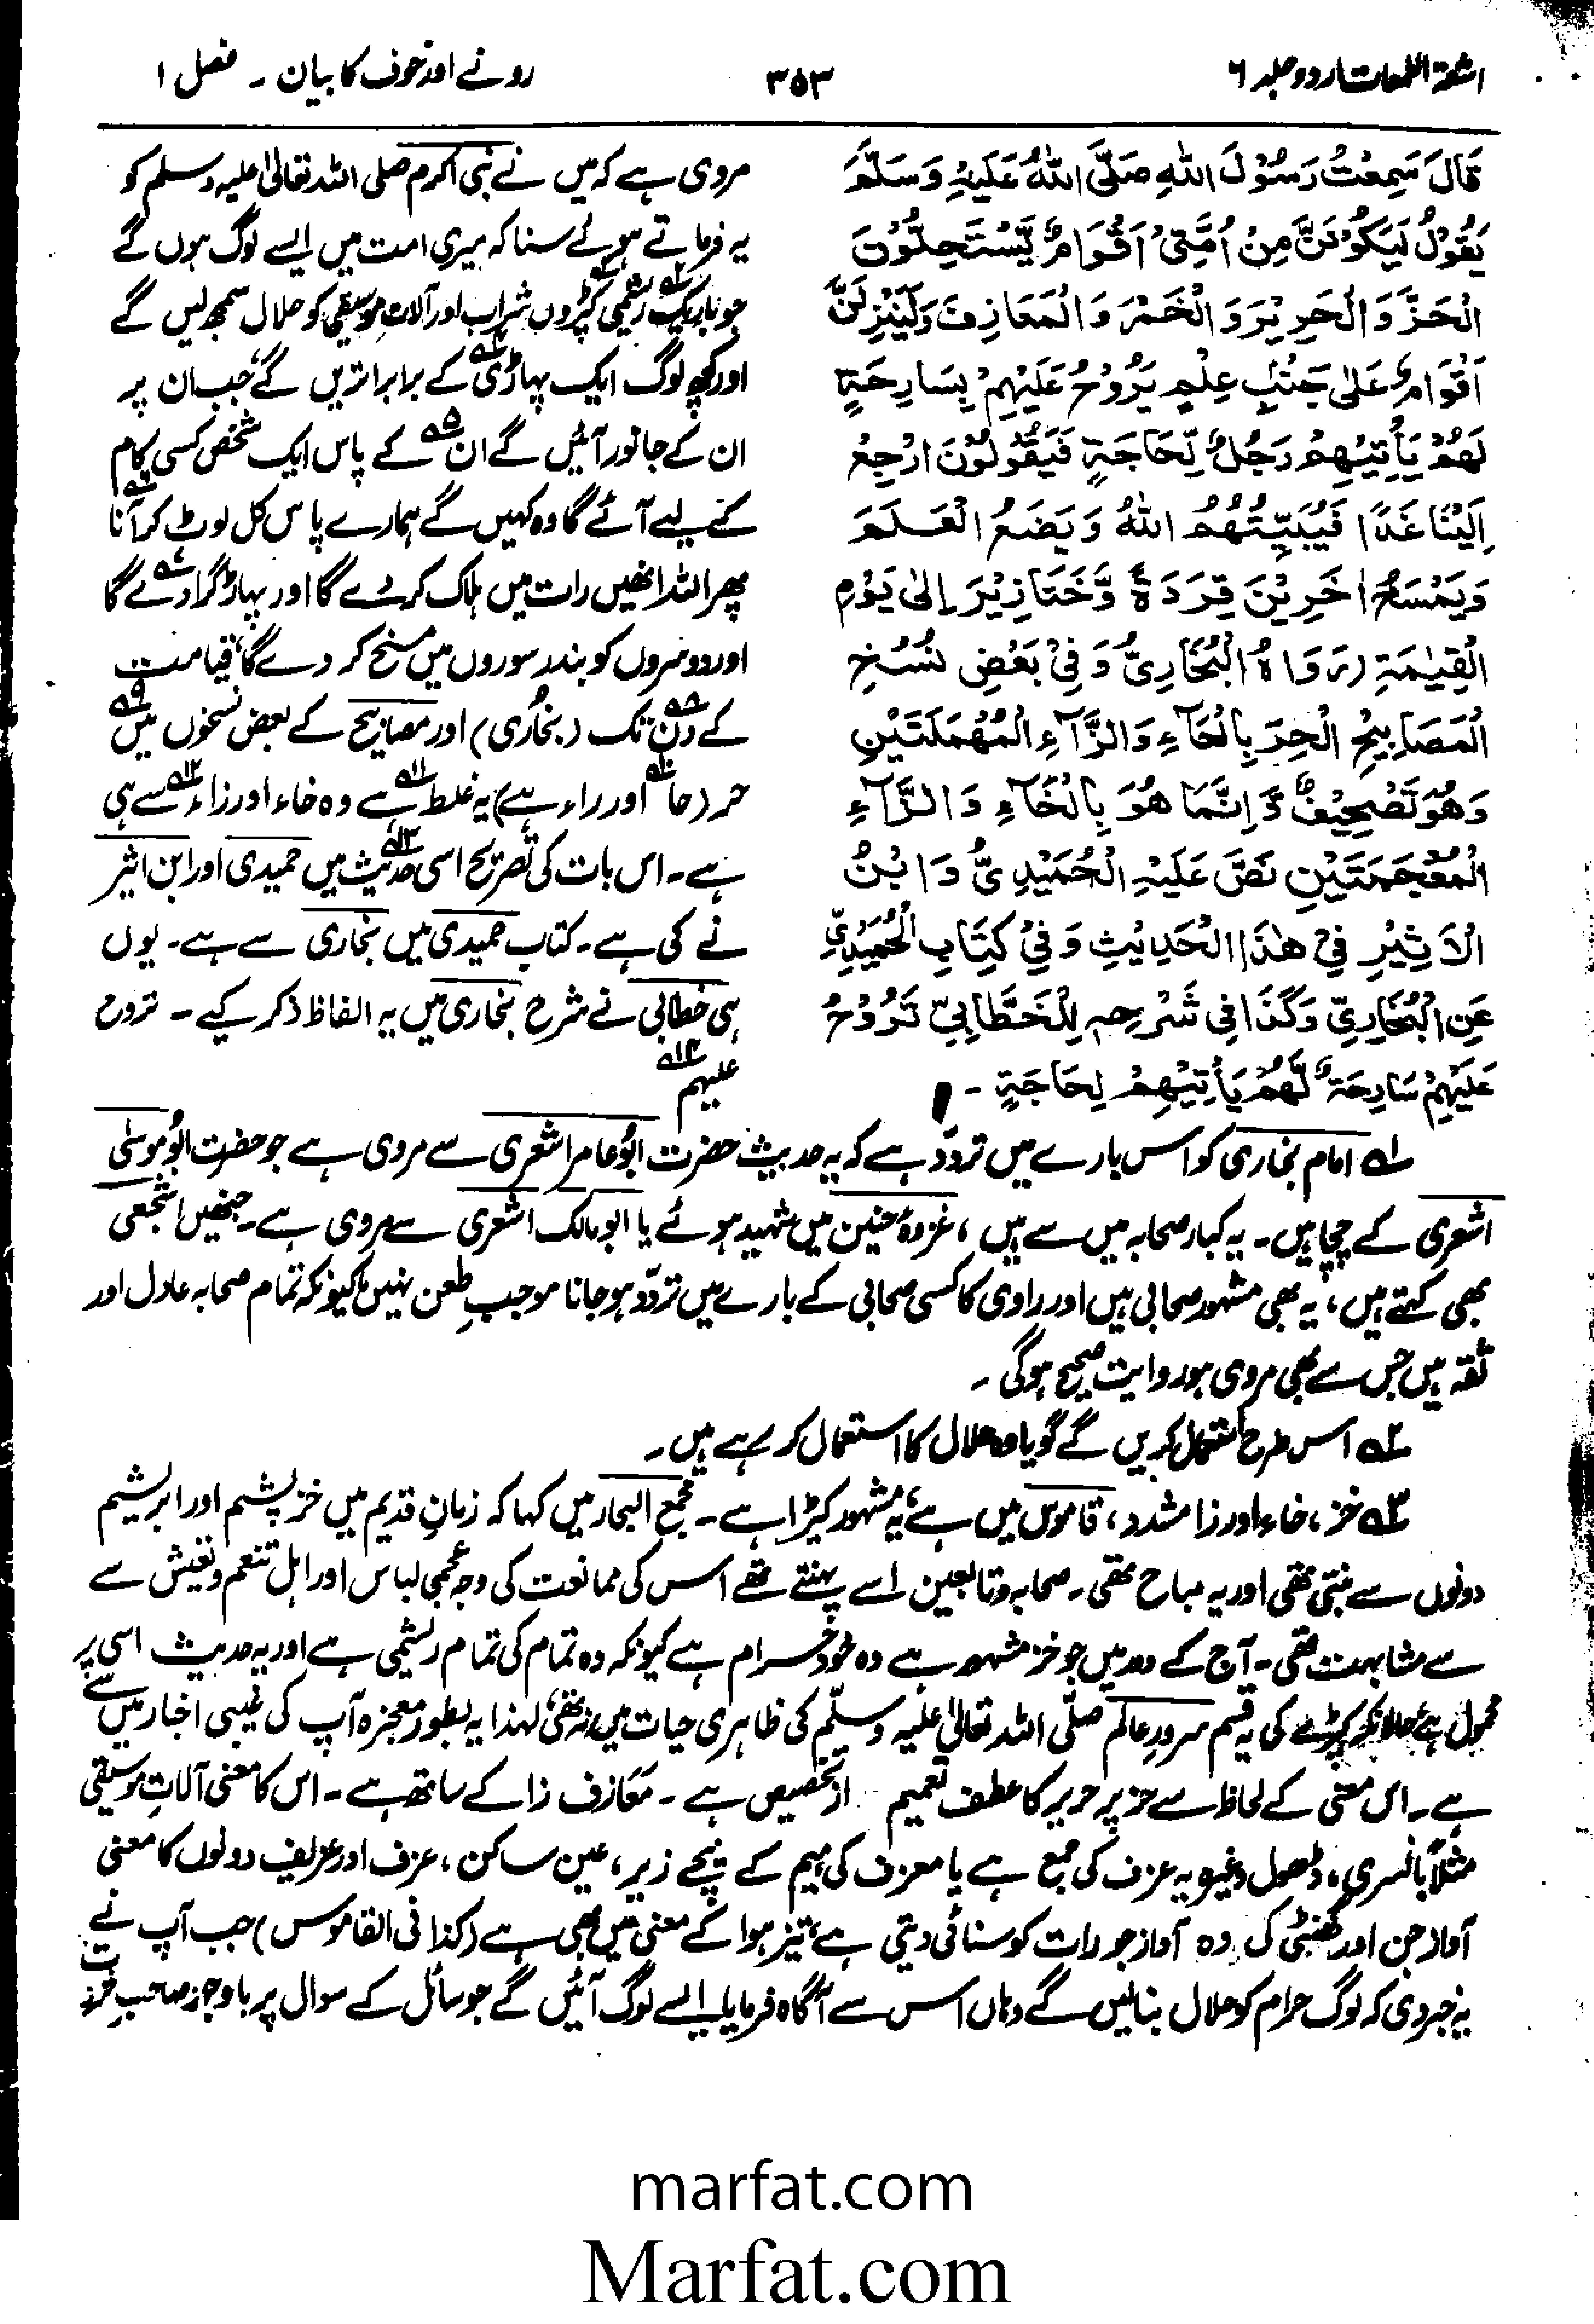 اشعۃ اللمعات اردو جلد ۶
۳۵۳
رونے اور خوف کا بیان ۔ فصل ۱
قَالَ سَمِعْتُ رَسُوْلَ اللّٰهِ صَلَّى اللّٰهُ عَلَيْهِ وَسَلَّمَ
يَقُوْلُ لَيَكُوْنَنَّ مِنْ اُمَّتِيْ اَقْوَامٌ يَّسْتَحِلُّوْنَ
الْخَزَّ وَالْحَرِيْرَ وَالْخَمْرَ وَالْمَعَازِفَ وَلَيَنْزِلَنَّ
اَقْوَامٌ عَلٰى جَنْبِ عَلَمٍ يَرُوْحُ عَلَيْهِمْ بِسَارِحَةٍ
لَهُمْ يَأْتِيْهِمْ رَجُلٌ لِّحَاجَةٍ فَيَقُوْلُوْنَ ارْجِعْ
اِلَيْنَا غَدًا فَيُبَيِّتُهُمُ اللّٰهُ وَيَضَعُ الْعَلَمَ
وَيَمْسَخُ اٰخَرِيْنَ قِرَدَةً وَّخَنَازِيْرَ اِلٰى يَوْمِ
الْقِيٰمَةِ (رَوَاهُ الْبُخَارِيُّ وَفِيْ بَعْضِ نُسَخِ
الْمَصَابِيْحِ الْحِرَ بِالْحَآءِ وَالرَّآءِ الْمُهْمَلَتَيْنِ
وَهُوَ تَصْحِيْفٌ وَّاِنَّمَا هُوَ بِالْخَآءِ وَالزَّآءِ
الْمُعْجَمَتَيْنِ نَصَّ عَلَيْهِ الْحُمَيْدِيُّ وَابْنُ
الْاَثِيْرِ فِيْ هٰذَا الْحَدِيْثِ وَفِيْ كِتَابِ الْحُمَيْدِيِّ
عَنِ الْبُخَارِيِّ وَكَذَا فِي شَرْحِهٖ لِلْخَطَّابِيِّ تَرُوْحُ
عَلَيْهِمْ سَارِحَةٌ لَّهُمْ يَأْتِيْهِمْ لِحَاجَةٍ ۔
مروی ہے کہ میں نے نبی اکرم صلی اللہ تعالیٰ علیہ وسلم کو
یہ فرماتے ہوئے سنا کہ میری امت میں ایسے لوگ ہوں گے
جو باریک ریشمی کپڑوں شراب اور آلات موسیقی کو حلال سمجھ لیں گے
اور کچھ لوگ ایک پہاڑی کے برابر اتریں گے، جب ان پر
ان کے جانور آئیں گے ان کے پاس ایک شخص کسی کام
کے لیے آئے گا وہ کہیں گے ہمارے پاس کل لوٹ کر آنا
پھر اللہ انھیں رات میں ہلاک کر دے گا اور پہاڑ گرا دے گا
اور دوسروں کو بندر سوروں میں مسخ کر دے گا، قیامت
کے دن تک (بخاری) اور مصابیح کے بعض نسخوں میں
حر (حا اور راء ہے) یہ غلط ہے وہ خاء اور زاء سے ہی
ہے۔ اس بات کی تصریح اسی حدیث میں حمیدی اور ابن اثیر
نے کی ہے۔ کتاب حمیدی میں بخاری سے ہے۔ یوں
ہی خطابی نے شرح بخاری میں یہ الفاظ ذکر کیے ۔ تروح
علیہم ۱۴؎
۱؎ امام بخاری کو اس بارے میں تردّد ہے کہ یہ حدیث حضرت ابوعامر اشعری سے مروی ہے جو حضرت ابوموسٰی
اشعری کے چچا ہیں۔ یہ کبار صحابہ میں سے ہیں ، غزوۂ حنین میں شہید ہوئے یا ابو مالک اشعری سے مروی ہے۔ جنھیں اشجعی
بھی کہتے ہیں، یہ بھی مشہور صحابی ہیں اور راوی کا کسی صحابی کے بارے میں تردّد ہو جانا موجبِ طعن نہیں کیونکہ تمام صحابہ عادل اور
ثقہ ہیں جس سے بھی مروی ہو روایت صحیح ہوگی ۔
۲؎ اس طرح استعمال کریں گے گویا وہ حلال کا استعمال کر رہے ہیں۔
۳؎ خز ، خاء اور زا مشدد ، قاموس میں ہے، یہ مشہور کپڑا ہے ۔ مجمع البحار میں کہا کہ زمانِ قدیم میں خز پشم اور ابریشیم
دونوں سے بنتی تھی اور یہ مباح تھی ۔ صحابہ و تابعین اسے پہنتے تھے اس کی ممانعت کی وجہ عجمی لباس اور اہل تنعم و تعیش سے
سے مشابہت تھی ۔ آج کے دور میں جو خز مشہور ہے وہ خود حرام ہے کیونکہ وہ تمام کی تمام ریشمی ہے اور یہ حدیث اسی پر
محمول ہے، حالانکہ کپڑے کی یہ قسم سرورِ عالم صلّی اللہ تعالیٰ علیہ وسلّم کی ظاہری حیات میں نہ تھی، لہٰذا یہ بطور معجزہ آپ کی غیبی اخبار میں سے
ہے۔ اس معنی کے لحاظ سے خز پر حریر کا عطف تعمیم از تخصیص ہے ۔ مَعَازف زا کے ساتھ ہے ۔ اس کا معنی آلاتِ موسیقی
مثلاً بانسری، ڈھول وغیرہ یہ عزف کی جمع ہے یا معزف کی میم کے نیچے زیر، عین ساکن ، عزف اور عزیف دونوں کا معنی
آواز جن اور گھنٹی کی وہ آواز جو رات کو سنائی دیتی ہے، تیز ہوا کے معنی میں بھی ہے (کذا فی القاموس) جب آپ نے
یہ خبر دی کہ لوگ حرام کو حلال بنالیں گے وہاں اس سے آگاہ فرمایا ایسے لوگ آئیں گے جو سائل کے سوال پر باوجود صاحبِ
marfat.com
Marfat.com